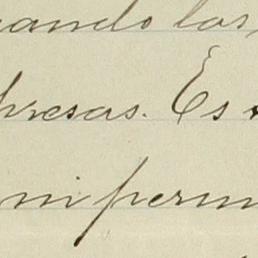 ando los
presas. Es
ni perm